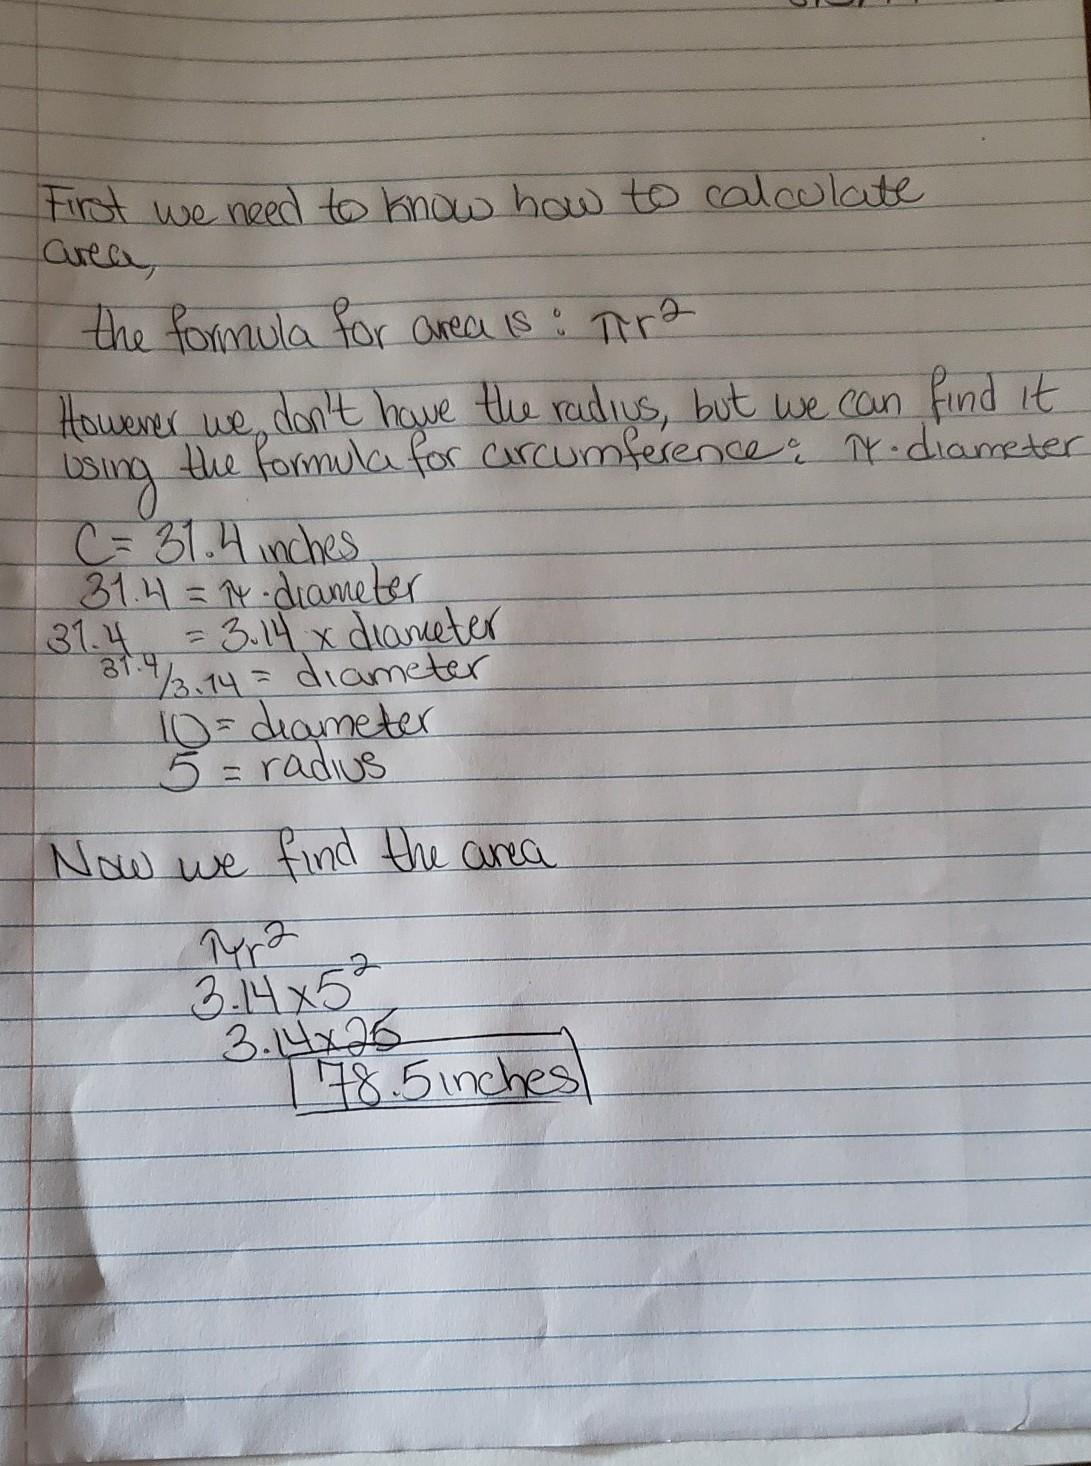 First we need to know how to calculate
area,
the formula for area is : πr²
However we, don't have the radius, but we can find it
using the formula for circumference: π · diameter
C = 31.4 inches
31.4 = π · diameter
31.4 = 3.14 x diameter
31.4/3.14 = diameter
10 = diameter
5 = radius
Now we find the area
πr²
3.14 x 5²
3.14 x 25
78.5 inches